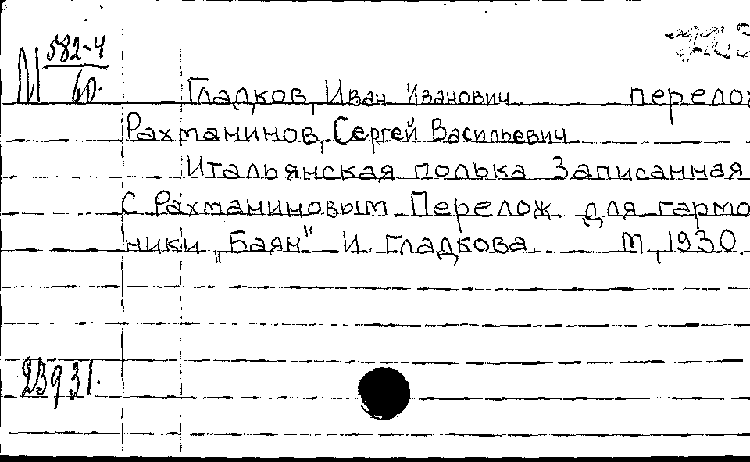 М 582-4
60.
Гладков, Иван Иванович перелож
Рахманинов, Сергей Васильевич
Итальянская полька Записанная
С. Рахманиновым. Перелож. для гармо
ники „Баян" И. Гладкова М., 1930.
23931.